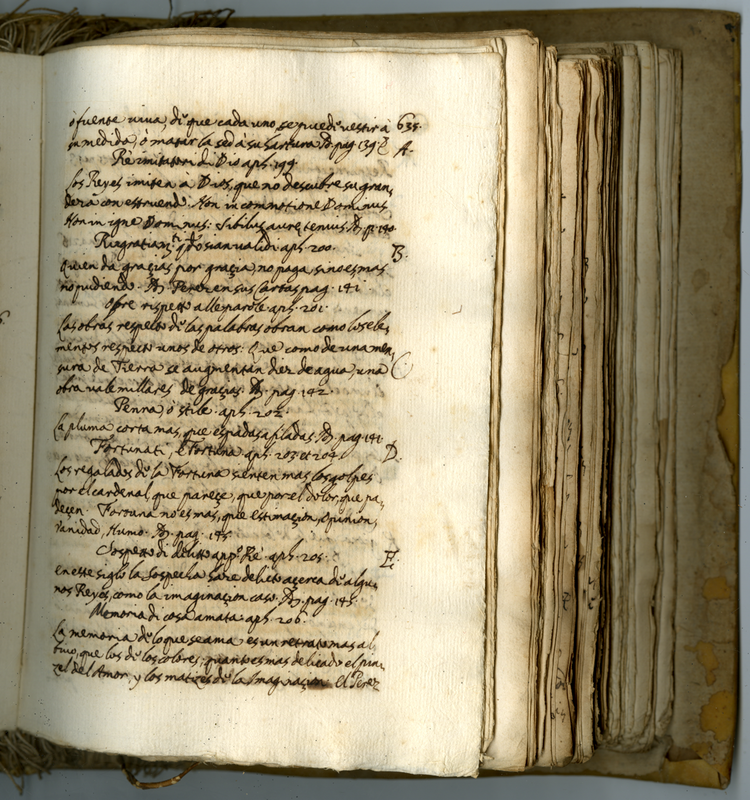 ò fuente viua, di que cada uno se puede vestir à 635.
su medida, ò matar la sed à su hartura. pag. 139.
A.
Rè imitatori di Dio aph. 199.
Los Reyes imiten à Dios, que no descubre su gran
deza con estruendo. Non in commotione Dominus
Non in igne Dominus: Sibilus auræ tenuis. p. 140
Ringratiam.ti aph. 200.
B.
Quien da gracias por gracia, no paga, sino es mas
no pudiendo. Perez en sus Cartas pag. 141
Opre rispetto alle parole. aph. 201.
Las obras respeto de las palabras obran como los ele,
mentos respecto unos de otros: Que como de una men,
sura de Tierra se augmentan diez de agua, una
C.
obra vale millares de gracias. pag. 142.
Penna, ò stile. aph. 202.
La pluma corta mas, que espadas afiladas. pag. 144
Fortunati, e Fortuna aph. 203 et 204
D.
Los regalados de la Fortuna sienten mas los golpes
por el cardenal, que pareçe, que por el dolor, que pa,
deçen. Fortuna no es mas, que estimaçion, Opinion,
Vanidad, Humo. pag. 145.
Sospetto di delitto app.o Rè. aph. 205.
E.
En este siglo la Sospecha haze delicto açerca de algu,
nos Reyes, como la imaginaçion caso. pag. 145.
Memoria di cosa amata aph. 206.
La memoria de lo que se ama es un retrato mas al
viuo, que los de los colores, quanto es mas delicado el pin,
zel del Amor, y los matizes de la Imaginaçion. El Perez